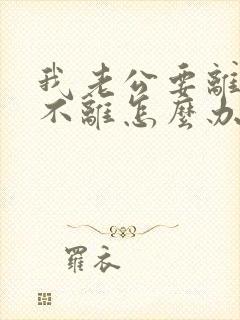 我老公要離
不離怎麼办
羅衣